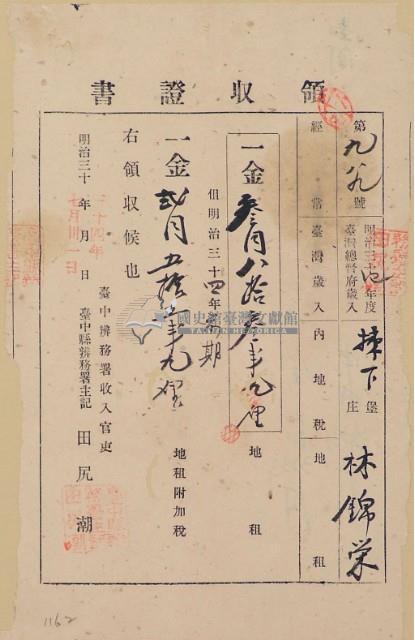 領收證書
第九九號 明治三十四年度臺灣總督府歲入 揀下堡 庄 林錦榮
經常 臺灣歲入 內地稅 地租
一金參円八拾參錢九厘 地租
但明治三十四年前期
一金貳円五拾 錢九厘 地租附加稅
右領收候也
明治三十 年 月 日 臺中辨務署收入官吏
三十四年
七月 日
臺中縣辨務署主記 田尻潮
國史館臺灣文獻館
TAIWAN HISTORICA
1162